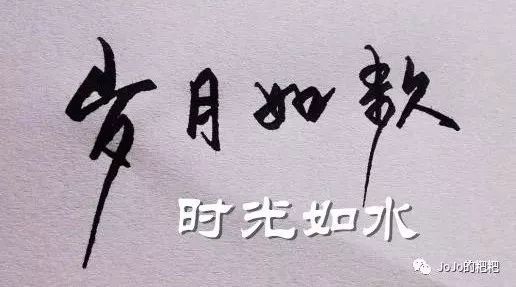 岁月如歌
时光如水
JoJo的粑粑